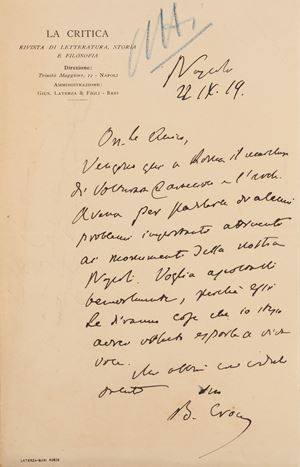 LA CRITICA
RIVISTA DI LETTERATURA, STORIA
E FILOSOFIA
Direzione:
Trinità Maggiore, 12 - NAPOLI
AMMINISTRAZIONE:
GIUS. LATERZA & FIGLI - BARI
Atti
Napoli
22 IX. 19.
On.le Amico,
Vengono qui a Roma il
di e l'arch.
per parlare di alcuni
problemi importanti
ai monumenti della nostra
Napoli. Voglia ascoltarli
benevolmente, perché essi
Le diranno cose che io stesso
avrei voluto esporle a viva
voce.
Mi abbia con cordiali
saluti suo
B. Croce
LATERZA-BARI